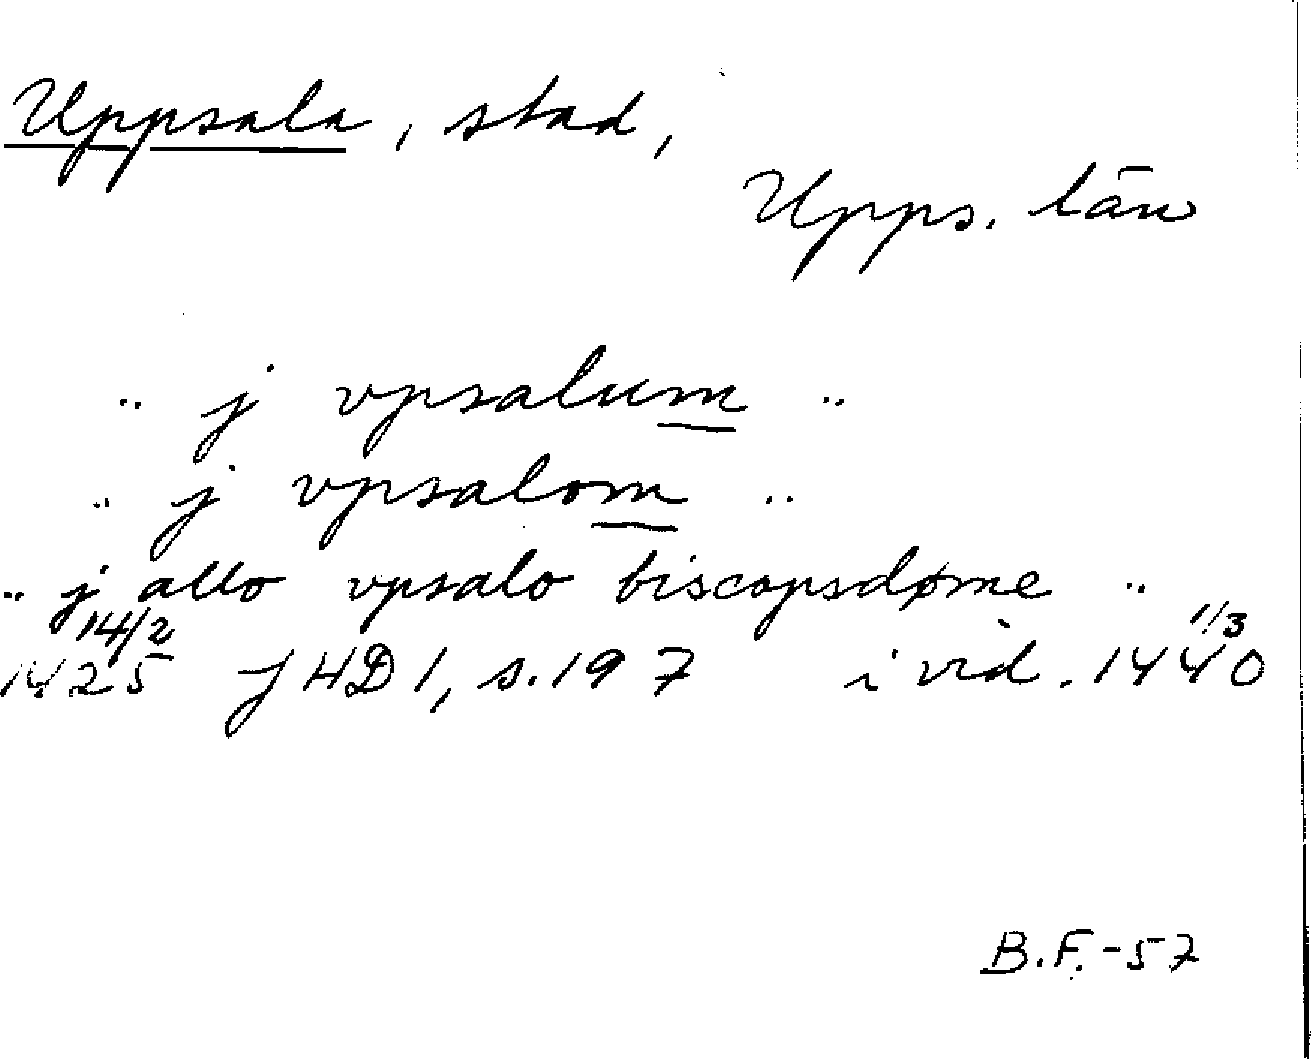 Uppsala, stad,
Upps. län
.. j vpsalum ..
.. j vpsalom ..
.. j allo vpsalo biscopsdøme ..
14/2 1/3
1425 JHD 1, s. 197 i vid. 1440
B.F.-57